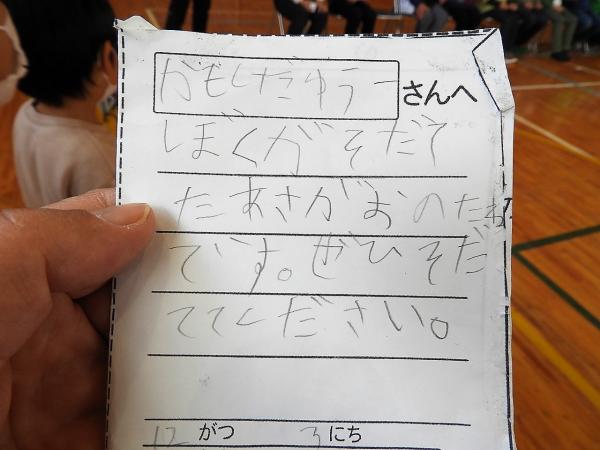 かもしだゆうー さんへ
ぼくがそだて
たあさがおのたね
です。ぜひそだ
ててください。
12 がつ 3 にち